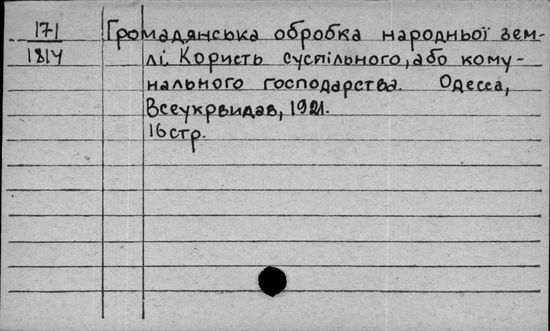 171 Громадянська обробка народньої зем-
1814 лі. Користь суспільного, або кому-
нального господарства. Одесса,
Всеукрвидав, 1921.
16 стр.